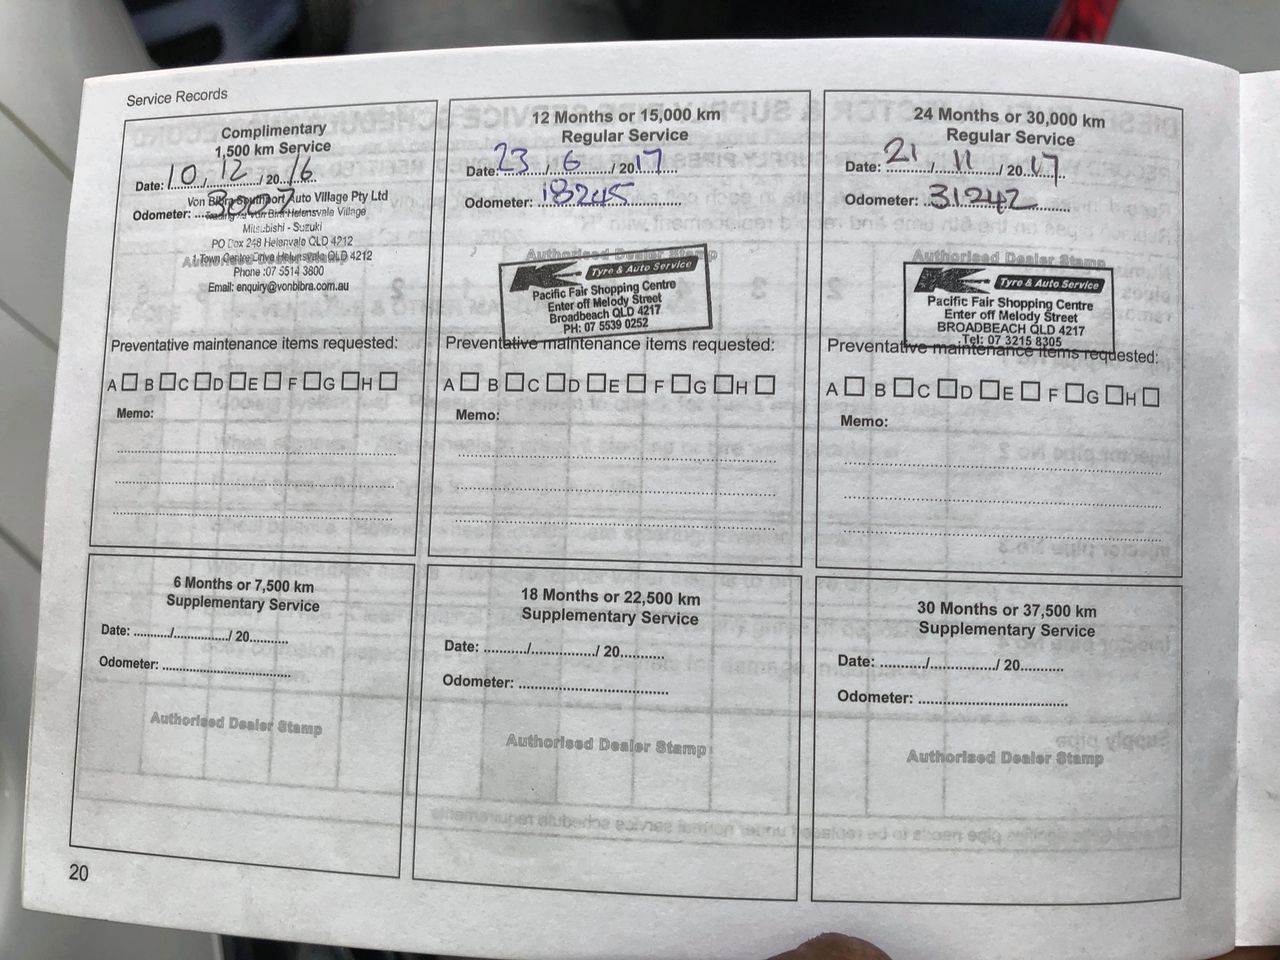 Service Records
Complimentary
1,500 km Service
Date: 10/12/2016
Von Bibra Southport Auto Village Pty Ltd
Odometer: 3007
Trading as Von Bibra Helensvale Village
Mitsubishi - Suzuki
PO Box 248 Helenvale QLD 4212
1 Town Centre Drive Helensvale QLD 4212
Authorised Dealer Stamp
Phone :07 5514 3800
Email: enquiry@vonbibra.com.au
Preventative maintenance items requested:
A B C D E F G H
Memo:
12 Months or 15,000 km
Regular Service
Date: 23/6/2017
Odometer: 18245
Authorised Dealer Stamp
K Tyre & Auto Service
Pacific Fair Shopping Centre
Enter off Melody Street
Broadbeach QLD 4217
PH: 07 5539 0252
Preventative maintenance items requested:
A B C D E F G H
Memo:
24 Months or 30,000 km
Regular Service
Date: 21/11/2017
Odometer: 31242
Authorised Dealer Stamp
K Tyre & Auto Service
Pacific Fair Shopping Centre
Enter off Melody Street
BROADBEACH QLD 4217
Tel: 07 3215 8305
Preventative maintenance items requested:
A B C D E F G H
Memo:
6 Months or 7,500 km
Supplementary Service
Date: ........../................/ 20..........
Odometer: ...................................
Authorised Dealer Stamp
18 Months or 22,500 km
Supplementary Service
Date: ........../................/ 20..........
Odometer: ...................................
Authorised Dealer Stamp
30 Months or 37,500 km
Supplementary Service
Date: ........../................/ 20..........
Odometer: ...................................
Authorised Dealer Stamp
20